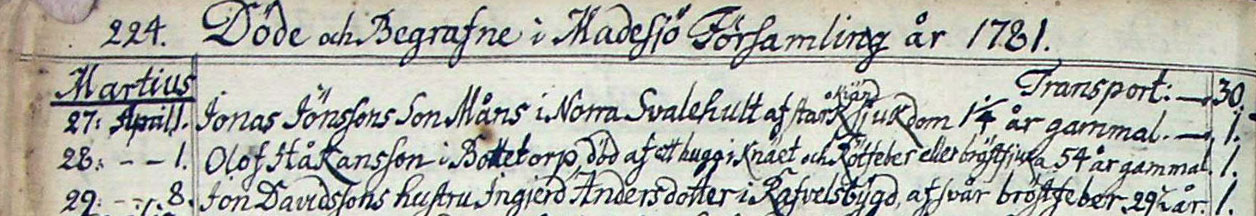 224. Döde och Begrafne i Madesjö Församling år 1781.
Martius Transport: — 30.
27: April 1. Jonas Jönssons Son Måns i Norra Svalehult af okänd sjukdom 1¼ år gammal. — 1.
28: - - 1. Olof Håkansson i Bottetorp, död af ett hugg i Knäet och Rötfeber eller bröstsjuka 54 år gammal 1.
29: - - 8. Jon Davidssons hustru Ingjerd Andersdotter i Rafvelsbygd, af svår bröstfeber 29½ år. 1.